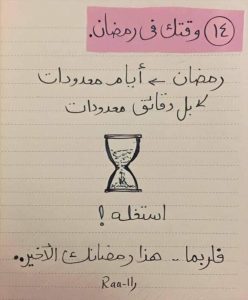 ١٤ وقتك في رمضان.
رمضان ← أيام معدودات
↙ بل دقائق معدودات
استغله !
فلربما .. هذا رمضانك الأخير..
Raa-را١١